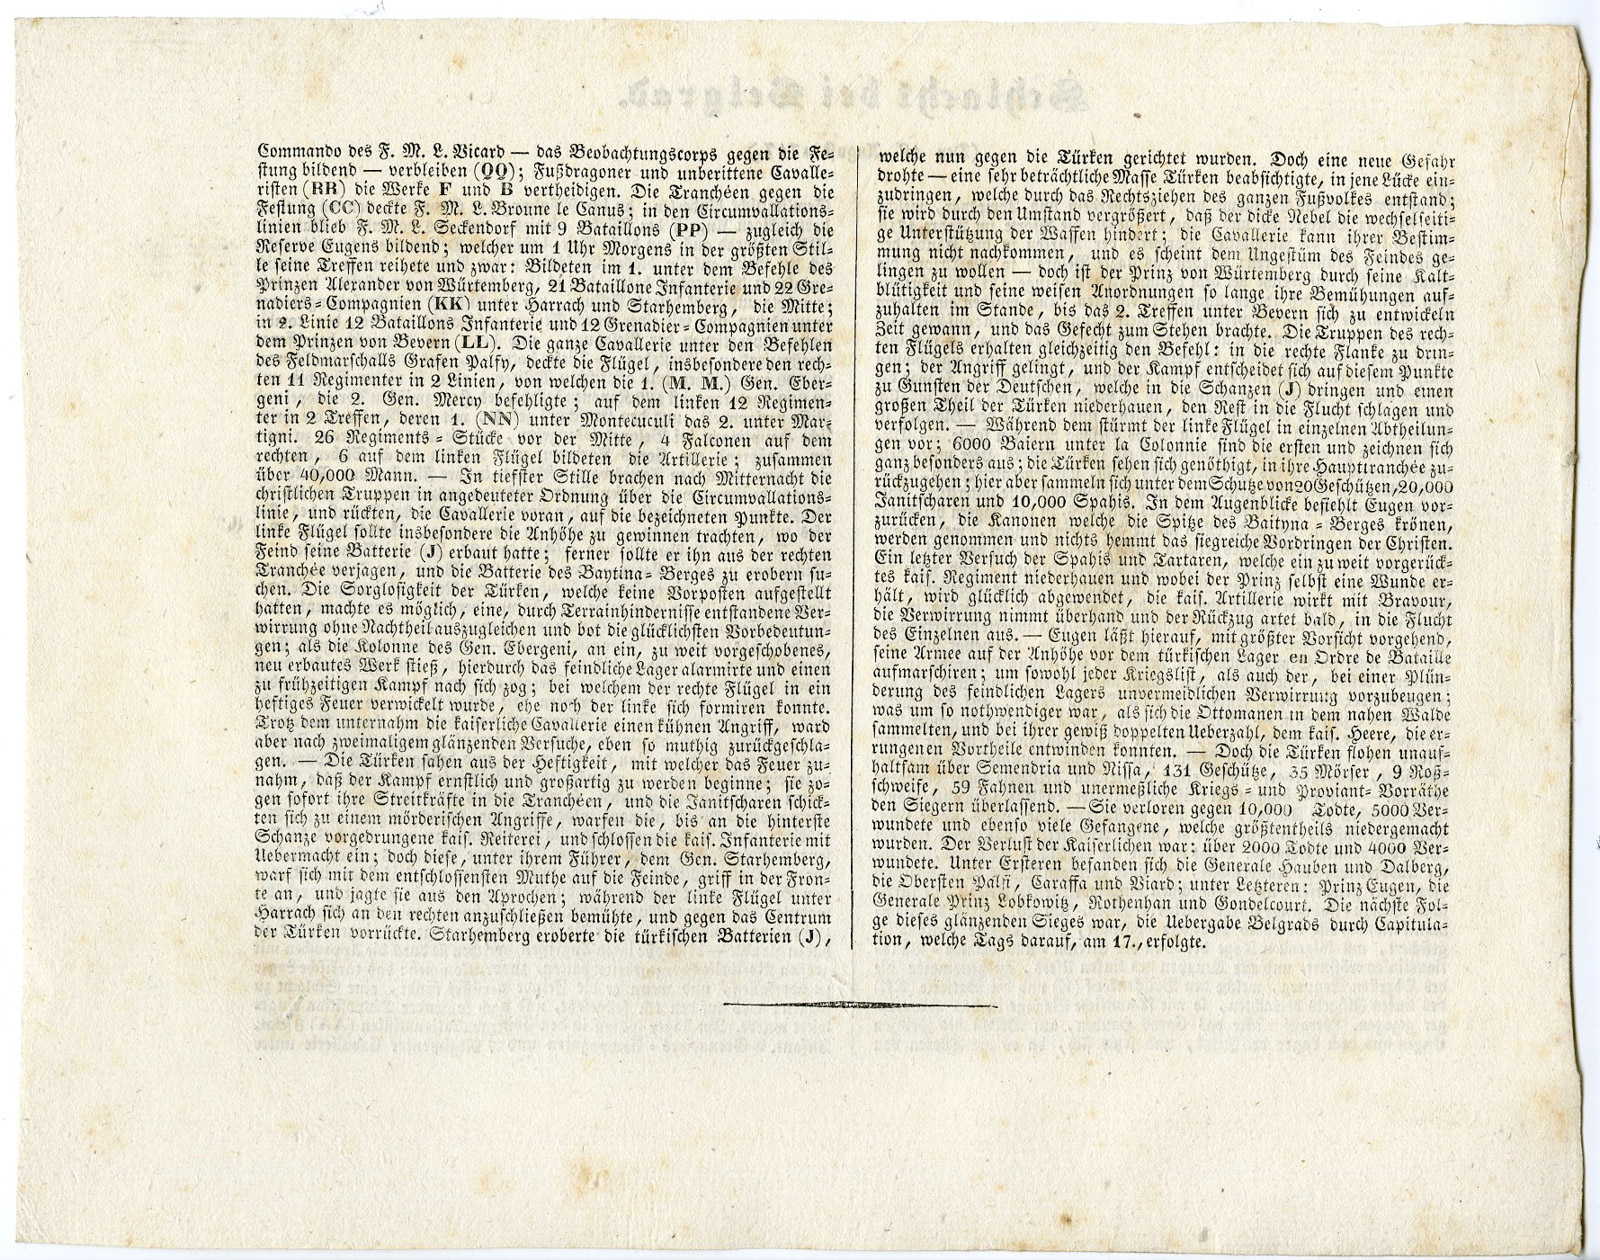 Commando des F. M. L. Vicard — das Beobachtungscorps gegen die Fe-
stung bildend — verbleiben (QQ); Fußdragoner und unberittene Cavalle-
risten (RR) die Werke F und B vertheidigen. Die Tranchéen gegen die
Festung (CC) deckte F. M. L. Broune le Canus; in den Circumvallations-
linien blieb F. M. L. Seckendorf mit 9 Bataillons (PP) — zugleich die
Reserve Eugens bildend; welcher um 1 Uhr Morgens in der größten Stil-
le seine Treffen reihete und zwar: Bildeten im 1. unter dem Befehle des
Prinzen Alexander von Würtemberg, 21 Bataillone Infanterie und 22 Gre-
nadiers-Compagnien (KK) unter Harrach und Starhemberg, die Mitte;
in 2. Linie 12 Bataillons Infanterie und 12 Grenadier-Compagnien unter
dem Prinzen von Bevern (LL). Die ganze Cavallerie unter den Befehlen
des Feldmarschalls Grafen Palfy, deckte die Flügel, insbesondere den rech-
ten 11 Regimenter in 2 Linien, von welchen die 1. (M. M.) Gen. Eber-
geni, die 2. Gen. Mercy befehligte; auf dem linken 12 Regimen-
ter in 2 Treffen, deren 1. (NN) unter Montecuculi das 2. unter Mar-
tigni. 26 Regiments-Stücke vor der Mitte, 4 Falconen auf dem
rechten, 6 auf dem linken Flügel bildeten die Artillerie; zusammen
über 40,000 Mann. — In tiefster Stille brachen nach Mitternacht die
christlichen Truppen in angedeuteter Ordnung über die Circumvallations-
linie, und rückten, die Cavallerie voran, auf die bezeichneten Punkte. Der
linke Flügel sollte insbesondere die Anhöhe zu gewinnen trachten, wo der
Feind seine Batterie (J) erbaut hatte; ferner sollte er ihn aus der rechten
Tranchée verjagen, und die Batterie des Baytina-Berges zu erobern su-
chen. Die Sorglosigkeit der Türken, welche keine Vorposten aufgestellt
hatten, machte es möglich, eine, durch Terrainhindernisse entstandene Ver-
wirrung ohne Nachtheil auszugleichen und bot die glücklichsten Vorbedeutun-
gen; als die Kolonne des Gen. Ebergeni, an ein, zu weit vorgeschobenes,
neu erbautes Werk stieß, hierdurch das feindliche Lager alarmirte und einen
zu frühzeitigen Kampf nach sich zog; bei welchem der rechte Flügel in ein
heftiges Feuer verwickelt wurde, ehe noch der linke sich formiren konnte.
Trotz dem unternahm die kaiserliche Cavallerie einen kühnen Angriff, ward
aber nach zweimaligem glänzenden Versuche, eben so muthig zurückgeschla-
gen. — Die Türken sahen aus der Heftigkeit, mit welcher das Feuer zu-
nahm, daß der Kampf ernstlich und großartig zu werden beginne; sie zo-
gen sofort ihre Streitkräfte in die Tranchéen, und die Janitscharen schick-
ten sich zu einem mörderischen Angriffe, warfen die, bis an die hinterste
Schanze vorgedrungene kais. Reiterei, und schlossen die kais. Infanterie mit
Uebermacht ein; doch diese, unter ihrem Führer, dem Gen. Starhemberg,
warf sich mit dem entschlossensten Muthe auf die Feinde, griff in der Fron-
te an, und jagte sie aus den Aprochen; während der linke Flügel unter
Harrach sich an den rechten anzuschließen bemühte, und gegen das Centrum
der Türken vorrückte. Starhemberg eroberte die türkischen Batterien (J),
welche nun gegen die Türken gerichtet wurden. Doch eine neue Gefahr
drohte — eine sehr beträchtliche Masse Türken beabsichtigte, in jene Lücke ein-
zudringen, welche durch das Rechtsziehen des ganzen Fußvolkes entstand;
sie wird durch den Umstand vergrößert, daß der dicke Nebel die wechselseiti-
ge Unterstützung der Waffen hindert; die Cavallerie kann ihrer Bestim-
mung nicht nachkommen, und es scheint dem Ungestüm des Feindes ge-
lingen zu wollen — doch ist der Prinz von Würtemberg durch seine Kalt-
blütigkeit und seine weisen Anordnungen so lange ihre Bemühungen auf-
zuhalten im Stande, bis das 2. Treffen unter Bevern sich zu entwickeln
Zeit gewann, und das Gefecht zum Stehen brachte. Die Truppen des rech-
ten Flügels erhalten gleichzeitig den Befehl: in die rechte Flanke zu drin-
gen; der Angriff gelingt, und der Kampf entscheidet sich auf diesem Punkte
zu Gunsten der Deutschen, welche in die Schanzen (J) dringen und einen
großen Theil der Türken niederhauen, den Rest in die Flucht schlagen und
verfolgen. — Während dem stürmt der linke Flügel in einzelnen Abtheilun-
gen vor; 6000 Baiern unter la Colonnie sind die ersten und zeichnen sich
ganz besonders aus; die Türken sehen sich genöthigt, in ihre Haupttranchée zu-
rückzugehen; hier aber sammeln sich unter dem Schutze von 20 Geschützen, 20,000
Janitscharen und 10,000 Spahis. In dem Augenblicke befiehlt Eugen vor-
zurücken, die Kanonen welche die Spitze des Baityna-Berges krönen,
werden genommen und nichts hemmt das siegreiche Vordringen der Christen.
Ein letzter Versuch der Spahis und Tartaren, welche ein zu weit vorgerück-
tes kais. Regiment niederhauen und wobei der Prinz selbst eine Wunde er-
hält, wird glücklich abgewendet, die kais. Artillerie wirkt mit Bravour,
die Verwirrung nimmt überhand und der Rückzug artet bald, in die Flucht
des Einzelnen aus. — Eugen läßt hierauf, mit größter Vorsicht vorgehend,
seine Armee auf der Anhöhe vor dem türkischen Lager en Ordre de Bataille
aufmarschiren; um sowohl jeder Kriegslist, als auch der, bei einer Plün-
derung des feindlichen Lagers unvermeidlichen Verwirrung vorzubeugen;
was um so nothwendiger war, als sich die Ottomanen in dem nahen Walde
sammelten, und bei ihrer gewiß doppelten Ueberzahl, dem kais. Heere, die er-
rungenen Vortheile entwinden konnten. — Doch die Türken flohen unauf-
haltsam über Semendria und Nissa, 131 Geschütze, 35 Mörser, 9 Roß-
schweife, 59 Fahnen und unermeßliche Kriegs- und Proviant-Vorräthe
den Siegern überlassend. — Sie verloren gegen 10,000 Todte, 5000 Ver-
wundete und ebenso viele Gefangene, welche größtentheils niedergemacht
wurden. Der Verlust der Kaiserlichen war: über 2000 Todte und 4000 Ver-
wundete. Unter Ersteren befanden sich die Generale Hauben und Dalberg,
die Obersten Palfi, Caraffa und Viard; unter Letzteren: Prinz Eugen, die
Generale Prinz Lobkowitz, Rothenhan und Gondelcourt. Die nächste Fol-
ge dieses glänzenden Sieges war, die Uebergabe Belgrads durch Capitula-
tion, welche Tags darauf, am 17., erfolgte.